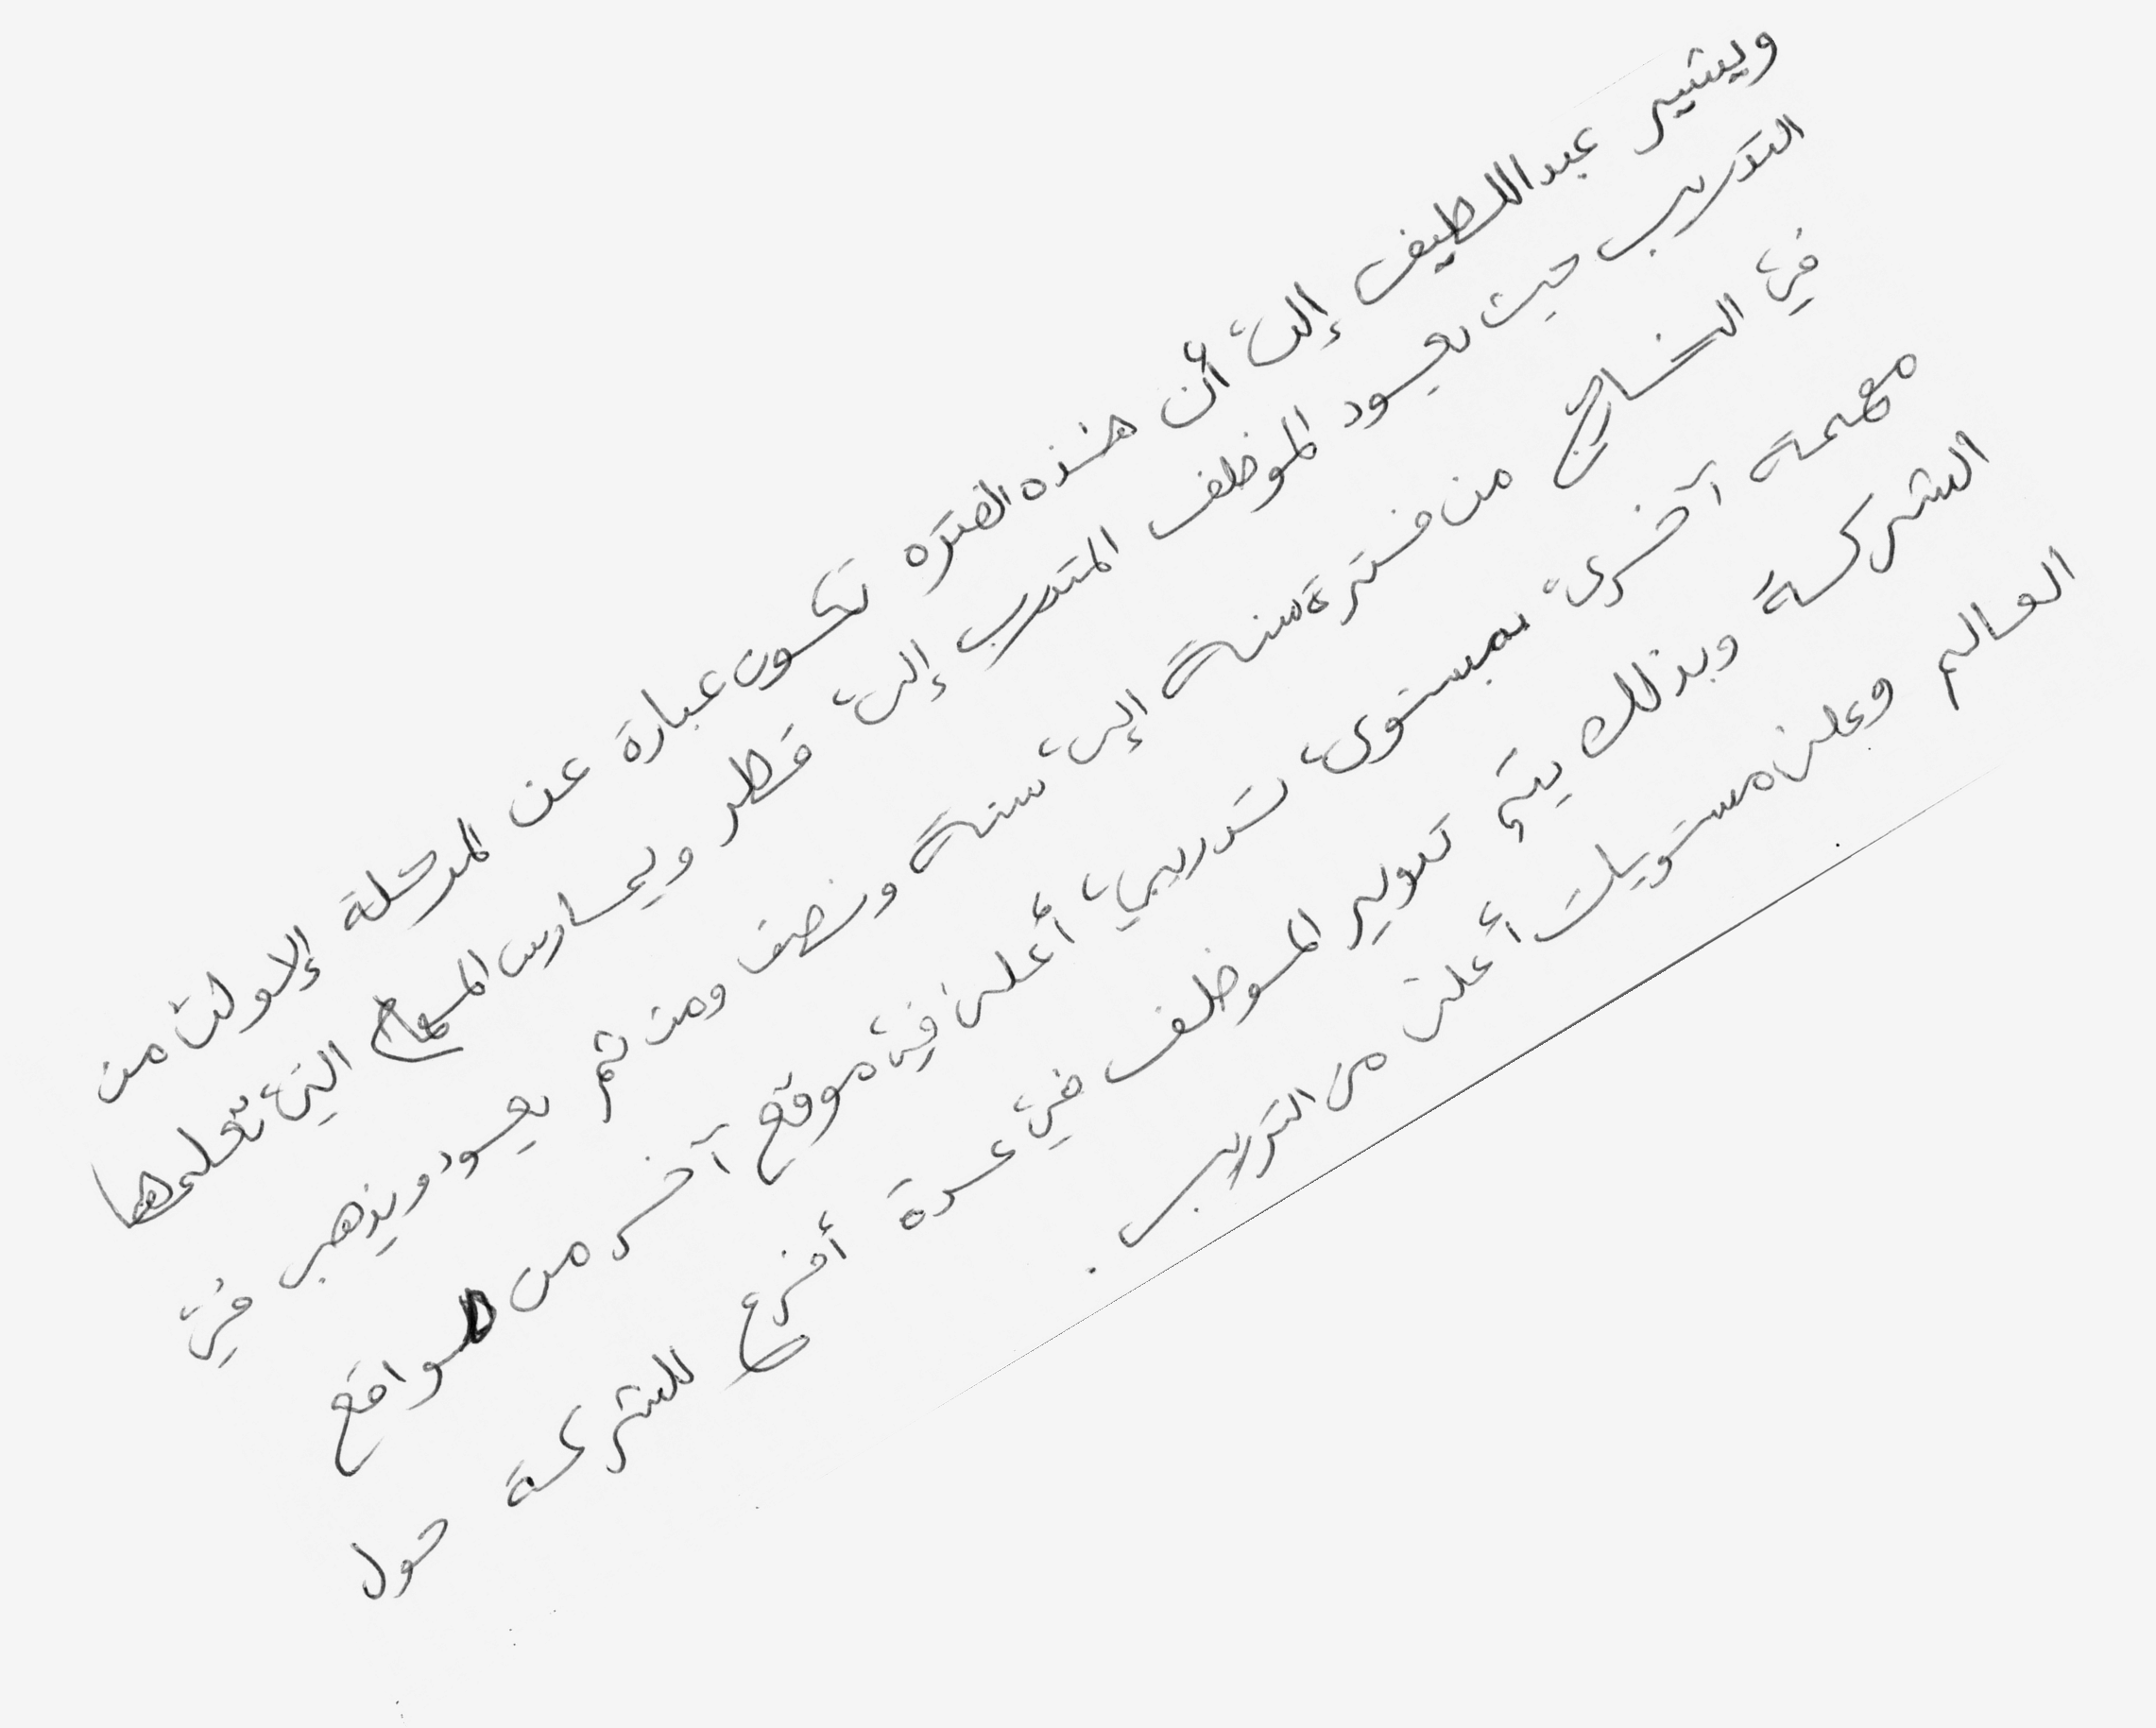 ويشير عبداللطيف إلى أن هذه الفتره تكون عبارة عن المرحلة الاولى من
التدريب حيث يعود الموظف المتدرب إلى قطر ويمارس المهام التي تعلمها
في الخارج من فترة سنة إلى سنة ونصف ومن ثم يعود ويذهب في
مهمة آخرى بمستوى تدريبي أعلى في موقع آخر من المواقع
الشركة وبذلك يتم تطوير الموظف في عدة أفرع للشركة حول
العالم وعلى مستويات أعلى من التدريب.